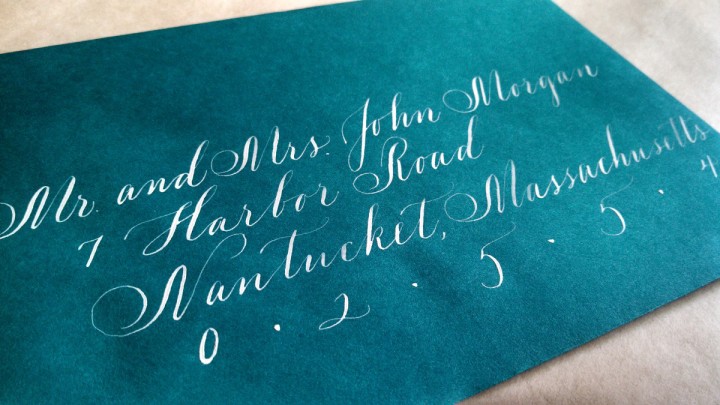 Mr. and Mrs. John Morgan
7 Harbor Road
Nantucket, Massachusetts
0 · 2 · 5 · 5 · 4